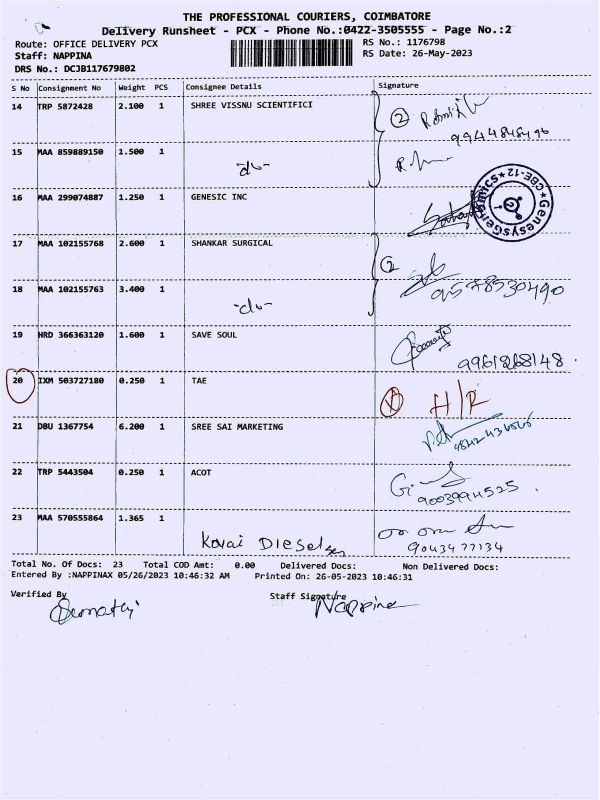 THE PROFESSIONAL COURIERS, COIMBATORE
Delivery Runsheet - PCX - Phone No.:0422-3505555 - Page No.:2
Route: OFFICE DELIVERY PCX
RS No.: 1176798
Staff: NAPPINA
RS Date: 26-May-2023
DRS No.: DCJB117679802
S No Consignment No Weight PCS Consignee Details Signature
14 TRP 5872428 2.100 1 SHREE VISSNU SCIENTIFICI
2
9944848496
15 MAA 859889150 1.500 1 -do-
16 MAA 299074887 1.250 1 GENESIC INC
CBE-12
17 MAA 102155768 2.600 1 SHANKAR SURGICAL
2
18 MAA 102155763 3.400 1 -do-
9578530490
19 HRD 366363120 1.600 1 SAVE SOUL
9961268148.
20 IXM 503727180 0.250 1 TAE H/R
21 DBU 1367754 6.200 1 SREE SAI MARKETING
22 TRP 5443504 0.250 1 ACOT
9003994525.
23 MAA 570555864 1.365 1 Kovai Diesel
9043477134
Total No. Of Docs: 23 Total COD Amt: 0.00 Delivered Docs: Non Delivered Docs:
Entered By :NAPPINAX 05/26/2023 10:46:32 AM Printed On: 26-05-2023 10:46:31
Verified By Staff Signature
Nappina